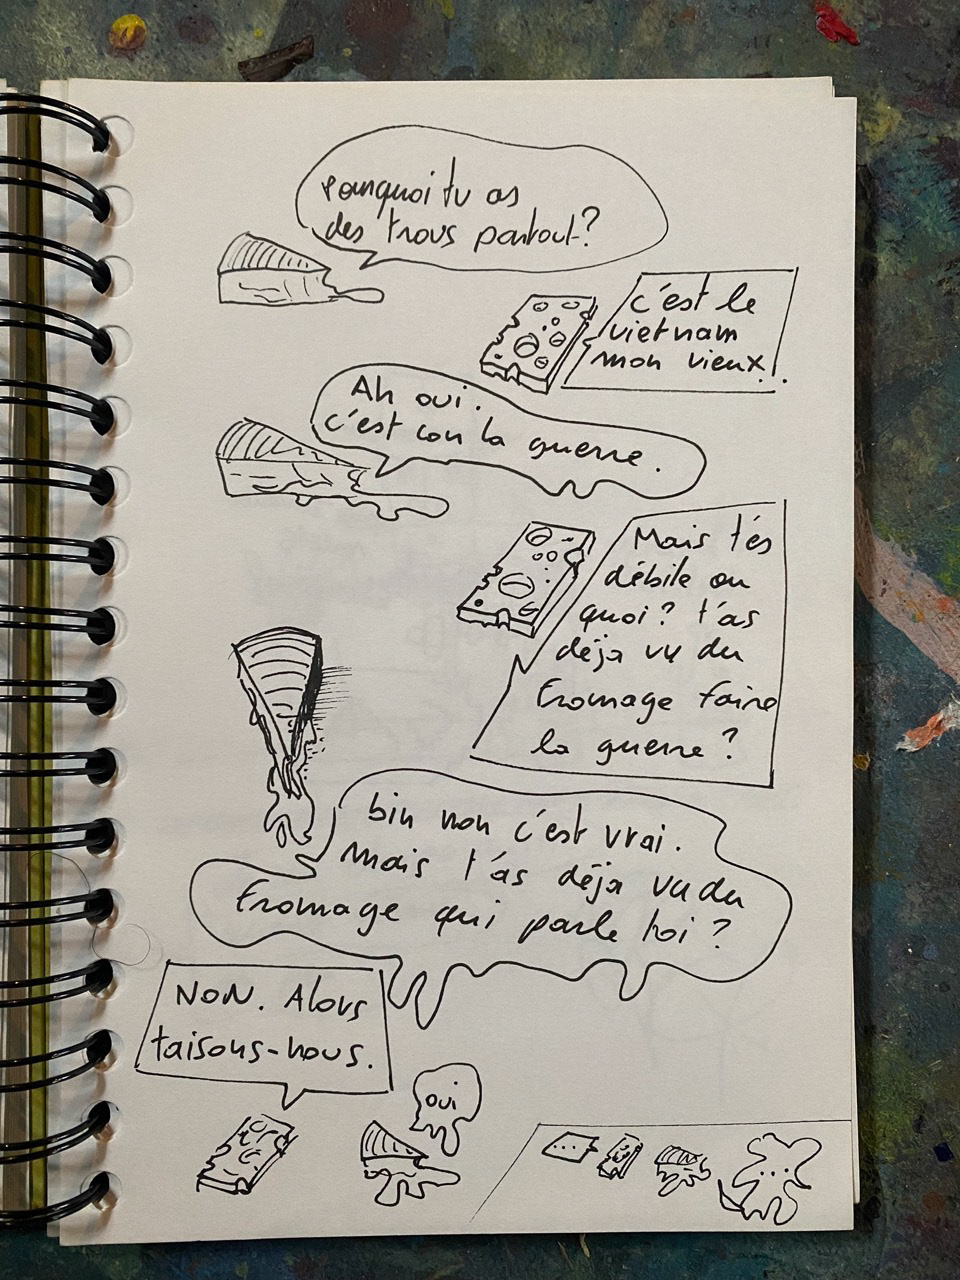 Pourquoi tu as
des trous partout?
c'est le
vietnam
mon vieux..
Ah oui.
c'est con la guerre.
Mais t'és
débile ou
quoi? t'as
déja vu du
fromage faire
la guerre?
bin non c'est vrai.
Mais t'as déja vu du
fromage qui parle toi?
NON. Alors
taisons-nous.
oui
...
...